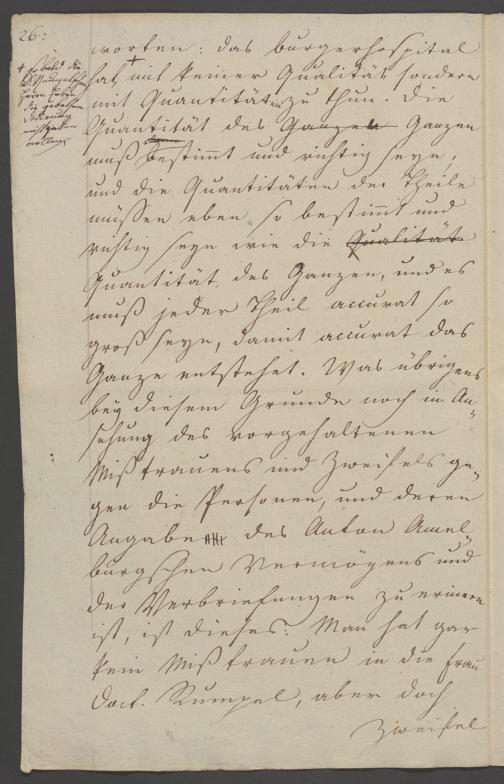 26.
worten: das burgerhospital
hat mit keiner Qualität sondern
mit Quantitäten zu thun. Die
Quantität des Ganzen Ganzen
muß bestimmt und richtig seyn,
und die Quantitäten der Theile
müssen eben so bestimmt und
richtig seyn wie die Qualität
Quantität des Ganzen, und es
muß jeder Theil accurat so
groß seyn, damit accurat das
Ganze entstehet. Was übrigens
bey diesem Grunde noch in An
sehung des vorgehaltenen
Mißtrauens und Zweifels ge
gen die Personen, und deren
Angabe des Anton Amel
burgschen Vermögens und
der Verbriefungen zu erinnern
ist, ist dieses: Man hat gar
kein Mißtrauen in die Frau
Doct. Rumpel, aber doch
Zweifel
+ sobald die
Erben
die gebetene